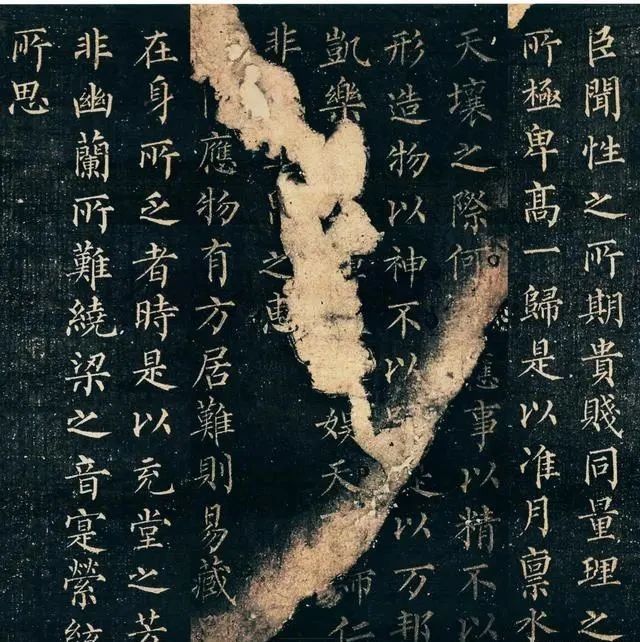 臣聞性之所期貴賤同量理之
所極卑高一歸是以准月禀水
天壤之際何應事以精不以
形造物以神不以是以万邦
凱樂娛天仁
非之惠
應物有方居難則易藏
在身所乏者時是以充堂之芳
非幽蘭所難繞梁之音寔縈絃
所思